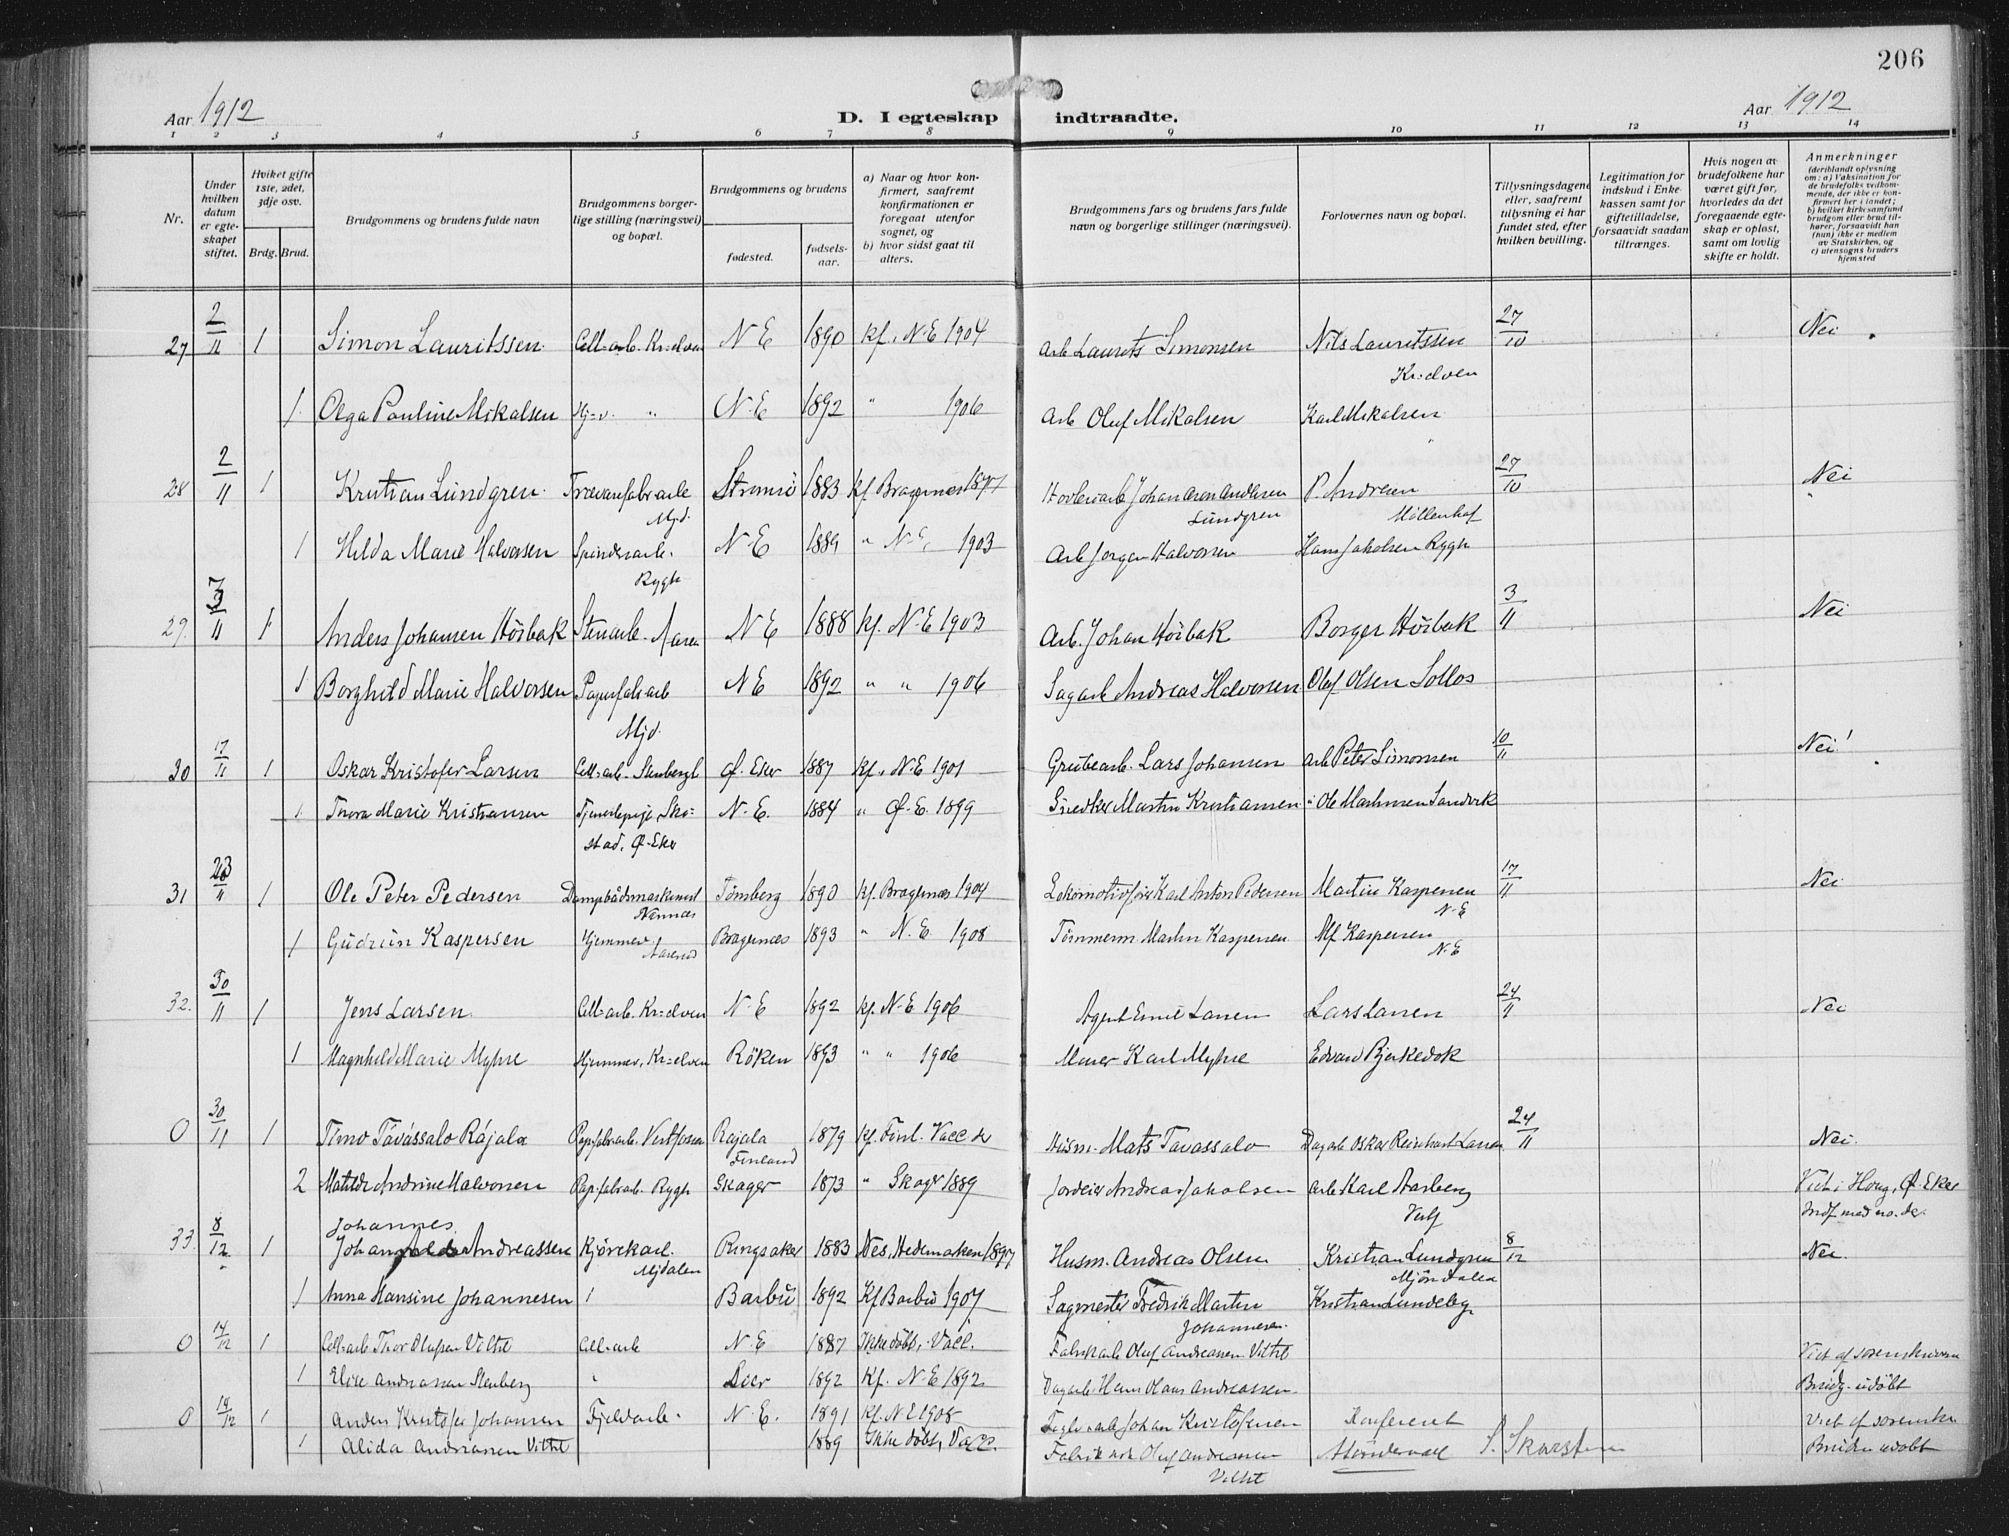 206
Aar 1912
D. I egteskap indtraadte.
Aar 1912
1 2 3 4 5 6 7 8 9 10 11 12 13 14
Nr.
Under hvilken datum er egteskapet stiftet.
Hvilket gifte 1ste, 2det, 3dje osv.
Brdg. Brud.
Brudgommens og brudens fulde navn
Brudgommens borgerlige stilling (næringsvei) og bopæl.
Brudgommens og brudens
fødested.
fødsels-aar.
a) Naar og hvor konfirmert, saafremt konfirmationen er foregaat utenfor sognet, og
b) hvor sidst gaat til alters.
Brudgommens fars og brudens fars fulde navn og borgerlige stillinger (næringsvei).
Forlovernes navn og bopæl.
Tillysningsdagene eller, saafremt tillysning ei har fundet sted, efter hvilken bevilling.
Legitimation for indskud i Enkekassen samt for giftetilladelse, forsaavidt saadan tiltrænges.
Hvis nogen av brudefolkene har været gift før, hvorledes da det foregaaende egteskap er opløst, samt om lovlig skifte er holdt.
Anmerkninger (deriblandt oplysning om: a) Vaksination for de brudefolks vedkommende, der ikke er konfirmert her i landet; b) hvilket kirkesamfund brudgom eller brud tilhører, forsaavidt han (hun) ikke er medlem av Statskirken, og c) utensogns bruders hjemsted
27 2/11 1 Simon Lauritssen Cell-arb. Kr:elven N-E 1890 kf. N-E 1904 Arb Laurits Simonsen Nils Lauritssen Kr:elven 27/10 Nei
1 Olga Pauline Mikalsen Hj-v. " N-E 1892 " 1906 Arb Oluf Mikalsen Karl Mikalsen "
28 2/11 1 Kristian Lundgren Trævarefabrarb Mjd. Strømsø 1883 kf Bragernes 1897 Høvleriarb Johan Aron Andersen Lundgren P. Andresen Möllenhof 27/10 Nei
1 Hilda Marie Halvorsen Spinderarb. Rygh N-E 1889 " N-E 1903 Arb Jørgen Halvorsen Hans Jakobsen Rygh
29. 3/11 1 Anders Johansen Höibak Stenarb. Aaren N E 1888 kf. N-E 1903 Arb. Johan Höibak Borger Höibak 3/11 Nei
1 Borghild Marie Halvorsen Papirfabrarb Mjd. N E 1892 " " 1906 Sagarb Andreas Halvorsen Olaf Olsen Sollos
30 17/11 1 Oskar Kristofer Larsen Cell-arb. Stenbergl Ø. Eker 1887 kf. N-E 1901 Grubearb. Lars Johansen Arb Peter Simonsen 10/11 Nei!
1. Thora Marie Kristiansen Tjenestepige, Skostad, Ø-Eker N-E. 1884 " Ø-E. 1899 Snedker Martin Kristiansen " Ole Mathisen Sandvik
31 23/11 1 Ole Peter Pedersen Dampbådsmaskinist Nennas Tønsberg 1890 kf. Bragernes 1904 Lokomotivfører Karl Anton Pedersen Martin Kaspersen N-E 17/11 Nei
1 Gudrun Kaspersen Hjemmev. Bragernes 1893 " N.E 1908 Tømmerm. Martin Kaspersen Alf Kaspersen N-E
32. 30/11 1 Jens Larsen Cell-arb. Kr:elven N-E 1892 kf. N-E 1906 Agent Emil Larsen Lars Larsen 24/11 Nei
1 Magnhild Marie Myhre Hjemmev. Kr:elven Röken 1893 " " 1906 Murer Karl Myhre Edvard Bjerkedok
0 30/11 1 Timo Tavassalo Rajala Pap-fabrarb. Vestfossen Rajala Finland 1879 kf. Finl. Vacc Husm. Mats Tavassalo Dagarb Oskar Reinhart Larsen 24/11 Nei.
2 Matilde Andrine Halvorsen Pap-fabrarb. Rygh Skager 1873 " Skoger 1889 Jordeier Andreas Jakobsen Arb Karl Aasberg Vestf Viet i Houg, Ø-Eker
33. 8/12 1 Johannes Andreassen Kjørekarl. Mjdalen Ringsaker 1883 Nes, Hedemarken 1897 Husm. Andreas Olsen Kristian Lundgren Mjöndalen 8/12 Nei.
1 Anna Hansine Johannesen Barbu 1892 Kf Barbu 1907 Sagmester Fredrik Martin Johannesen Kristian Lundeby
0 14/12 1 Cell-arb Thor Olufsen Villet Cell-arb N-E 1887 Ikke døbt, Vacc. Fabrikarb Oluf Andreassen Villet Viet af sorenskriveren
1 Elise Andreassen Stenberg " 1892 Kf. N-E 1892. Dagarb Hans Olaus Andreassen Brudg. udøbt
0 14/12 1 Anders Kristofer Johansen Fjeldarb. N-E. 1891 kf. N E 1908 Teglv-arb Johan Kristofersen Konfereret Viet af sorenskr
1 Alida Andreassen Villet 1889 Ikke døbt, Vacc. Fabrik arb Oluf Andreassen Villet S. Skarstein Bruden udøbt